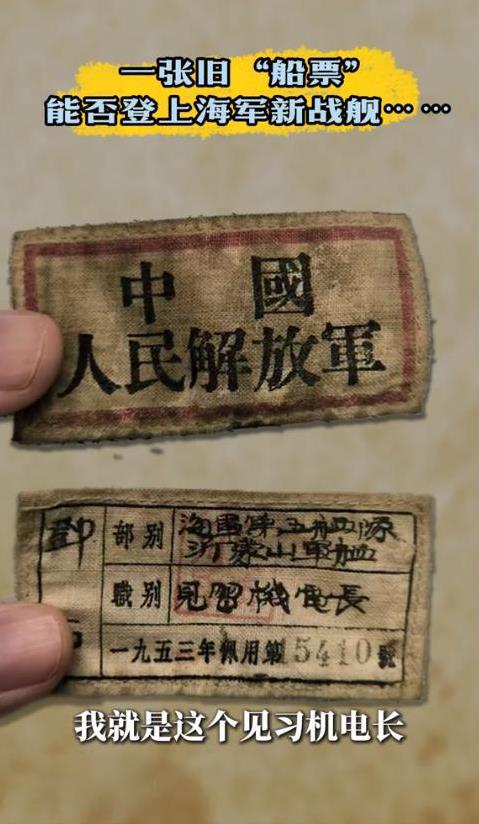 一张旧“船票”
能否登上海军新战舰……
中國
人民解放軍
部别 海軍第五舰隊
沂蒙山軍舰
職别 見習機電長
一九五三年佩用第15410號
我就是这个见习机电长